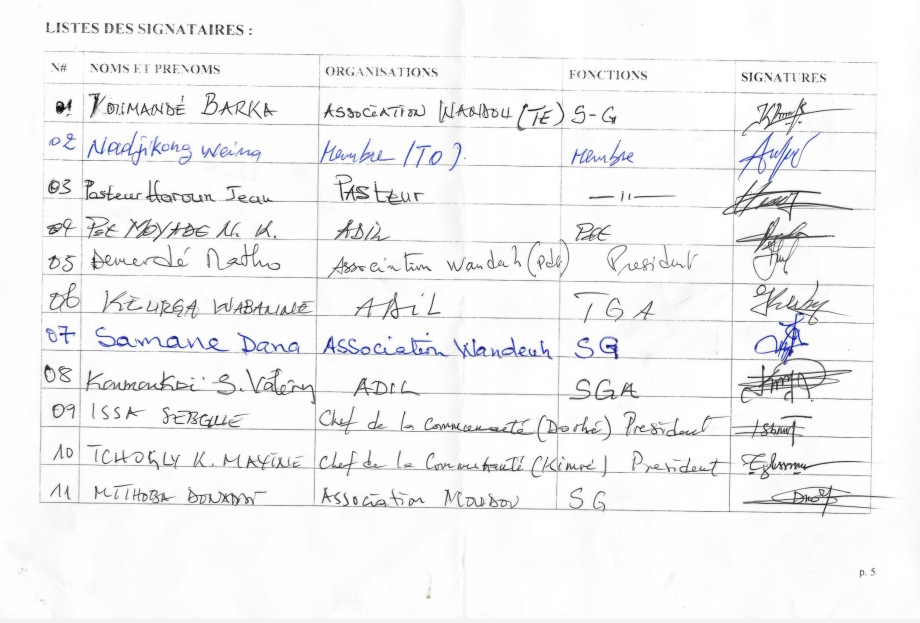 LISTES DES SIGNATAIRES :
N# NOMS ET PRENOMS ORGANISATIONS FONCTIONS SIGNATURES
01 KOUMANDÉ BARKA ASSOCIATION WANDOU (TE) S-G
02 Nadjikong Weina Membre (TO). Membre
03 Pasteur Haroun Jean PASteur — 11 —
04 PCE MOYADE N. K. ADIL PCE
05 Demerdé Natho Association Wandeh (Pdt) President
06 KEURGA WABANNE ADIL TGA
07 Samane Dana ASSOCiAtiON Wandeuh SG
08 Koumoukoi S. Valéry ADIL SGA
09 ISSA Chef de la Communauté (Dorhé) President
10 TCHOGLY K. MAXIME Chef de la Communauté (Kimré) President
11 Association MOUDOU SG
p. 5